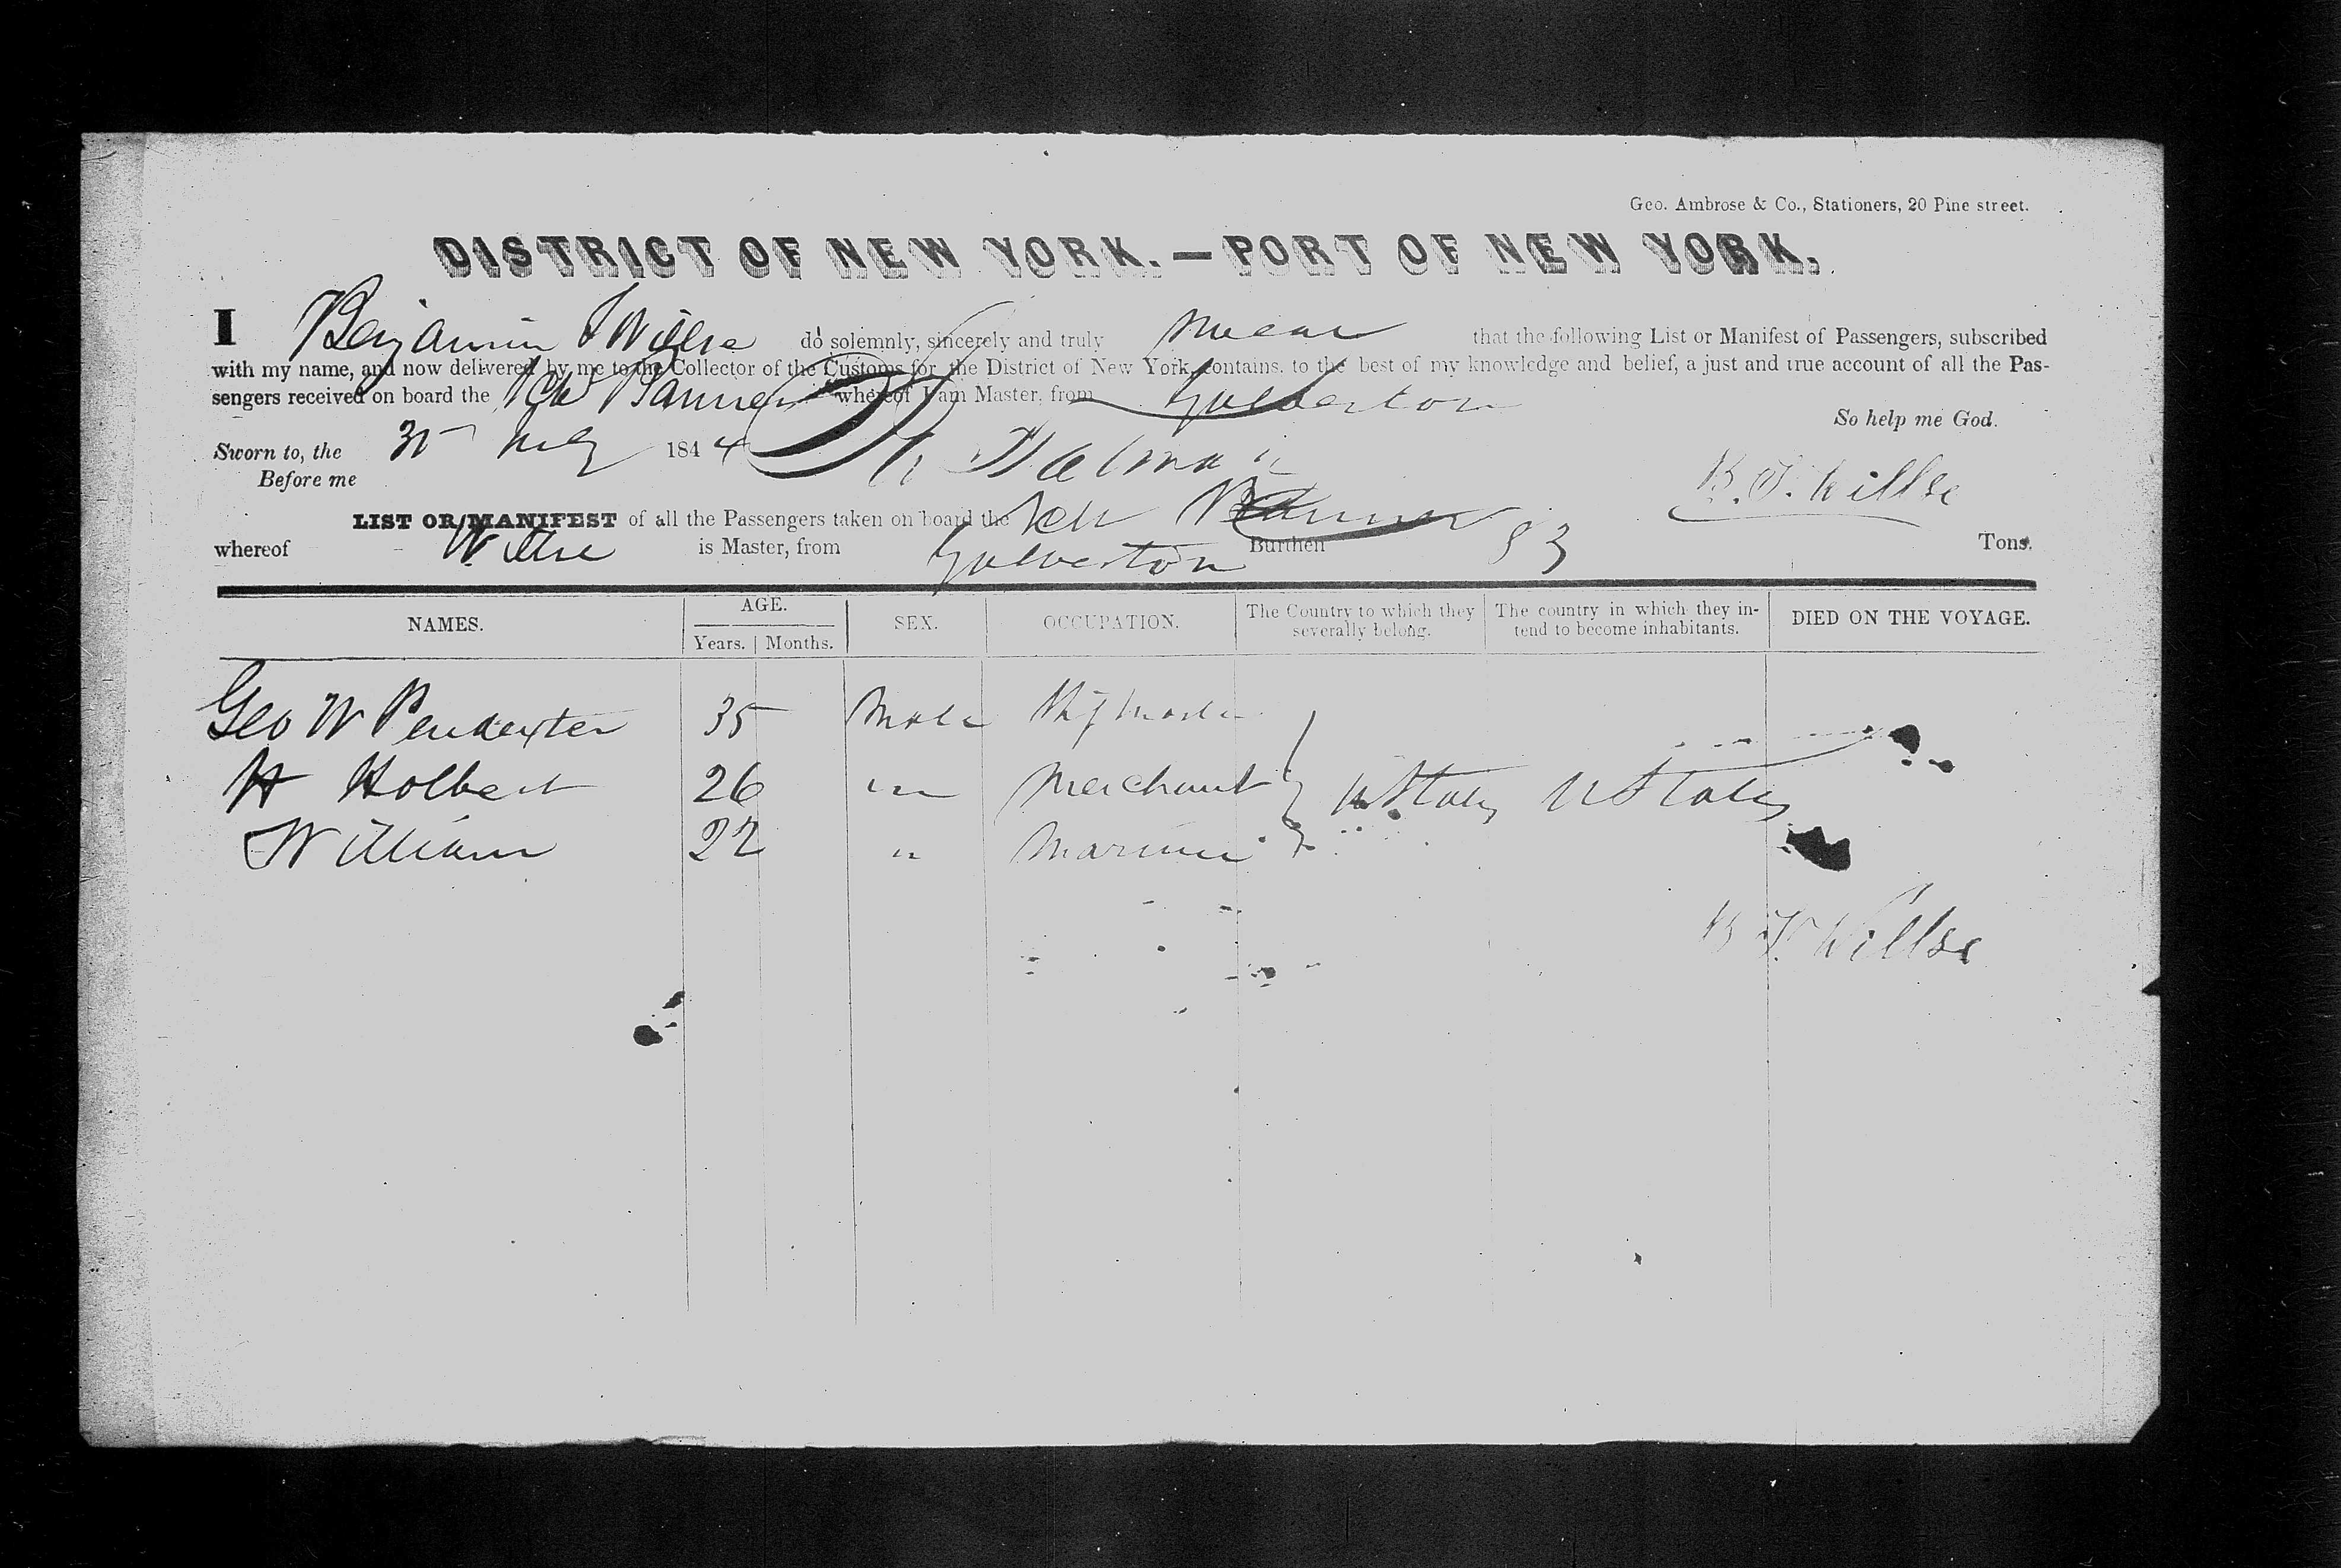 Geo. Ambrose & Co., Stationers, 20 Pine street.
DISTRICT OF NEW YORK.—PORT OF NEW YORK.
I Benjamin F Willse do solemnly, sincerely and truly swear that the following List or Manifest of Passengers, subscribed
with my name, and now delivered by me to the Collector of the Customs for the District of New York, contains, to the best of my knowledge and belief, a just and true account of all the Pas-
sengers received on board the Sch Banner whereof I am Master, from Galveston
So help me God.
Sworn to, the 1844
Before me
B. F. Willse
LIST OR MANIFEST of all the Passengers taken on board the Sch Banner
whereof Willse is Master, from Galveston Burthen 83 Tons.
NAMES. AGE. Years. Months. SEX. OCCUPATION. The Country to which they severally belong. The country in which they in-tend to become inhabitants. DIED ON THE VOYAGE.
Geo W Pendexter 35 Male
H Holbert 26 " Merchant U States U States
William 22 " Mariner
B F Willse